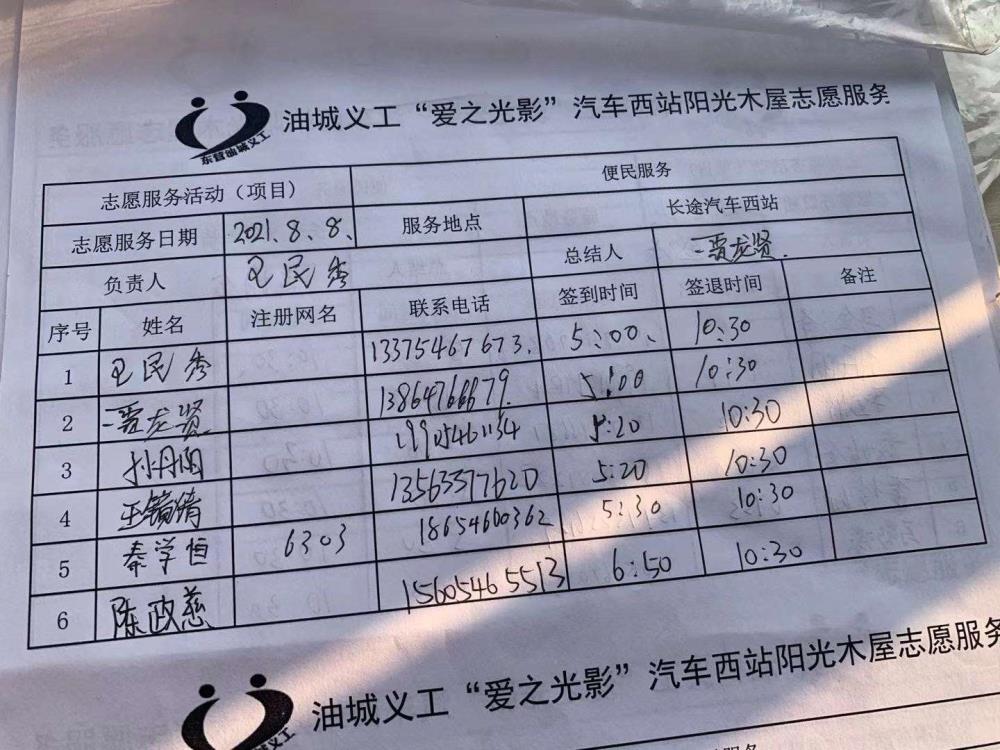 油城义工“爱之光影”汽车西站阳光木屋志愿服务
东营油城义工
志愿服务活动（项目） 便民服务
志愿服务日期 2021.8.8、 服务地点 长途汽车西站
负责人 民秀 总结人 贾龙贤
序号 姓名 注册网名 联系电话 签到时间 签退时间 备注
1 民秀 13375467673. 5:00、 10:30
2 贾龙贤 5:00 10:30
3 孙丹阳 5:20 10:30
4 王镝绮 13563377620 5:20 10:30
5 秦学恒 6303 18654600362 5:30 10:30
6 陈政慈 15605465513 6:50 10:30
油城义工“爱之光影”汽车西站阳光木屋志愿服务